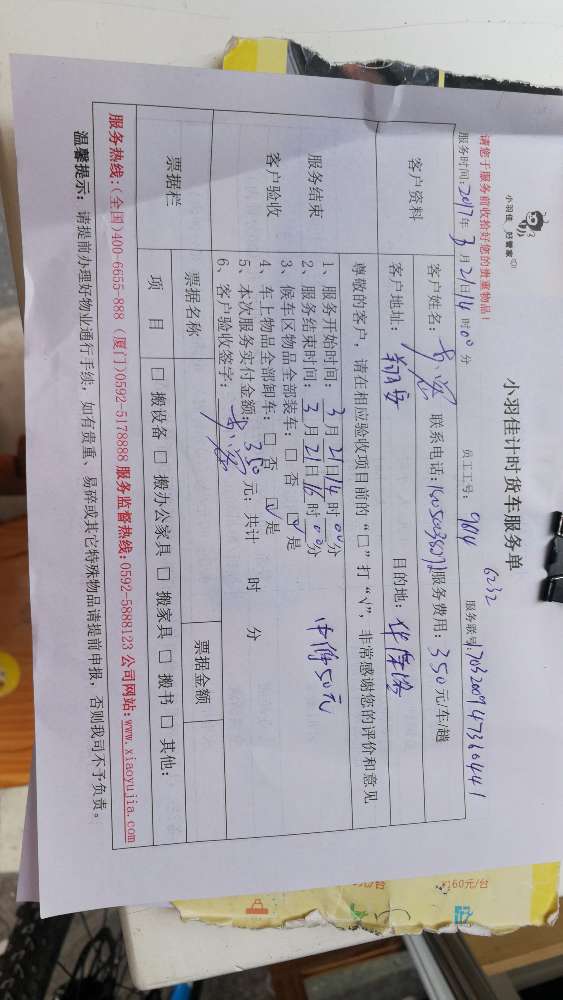 请您于服务前收拾好您的贵重物品！
小羽佳 好管家
小羽佳计时货车服务单
6232
服务时间：2017年3月21日14时00分
员工工号：9814
服务联号：
客户资料
客户姓名：
联系电话：
服务费用：350元/车/趟
客户地址：
目的地：
尊敬的客户，请在相应验收项目前的“□”打“√”，非常感谢您的评价和意见
服务结束
客户验收
1、服务开始时间：3月21日14时00分
2、服务结束时间：3月21日16时00分
50元
3、候车区物品全部装车：□ 否 ☑ 是
4、车上物品全部卸车：□ 否 ☑ 是
5、本次服务实付金额：350元；共计 时 分
6、客户验收签字：
票据栏
票据名称
票据金额
项 目
□ 搬设备 □ 搬办公家具 □ 搬家具 □ 搬书 □ 其他：
服务热线：(全国)400-6655-888 (厦门)0592-5178888 服务监督热线：0592-5888123 公司网站：www.xiaoyujia.com
温馨提示：请提前办理好物业通行手续，如有贵重、易碎或其它特殊物品请提前申报，否则我司不予负责。
160元/台